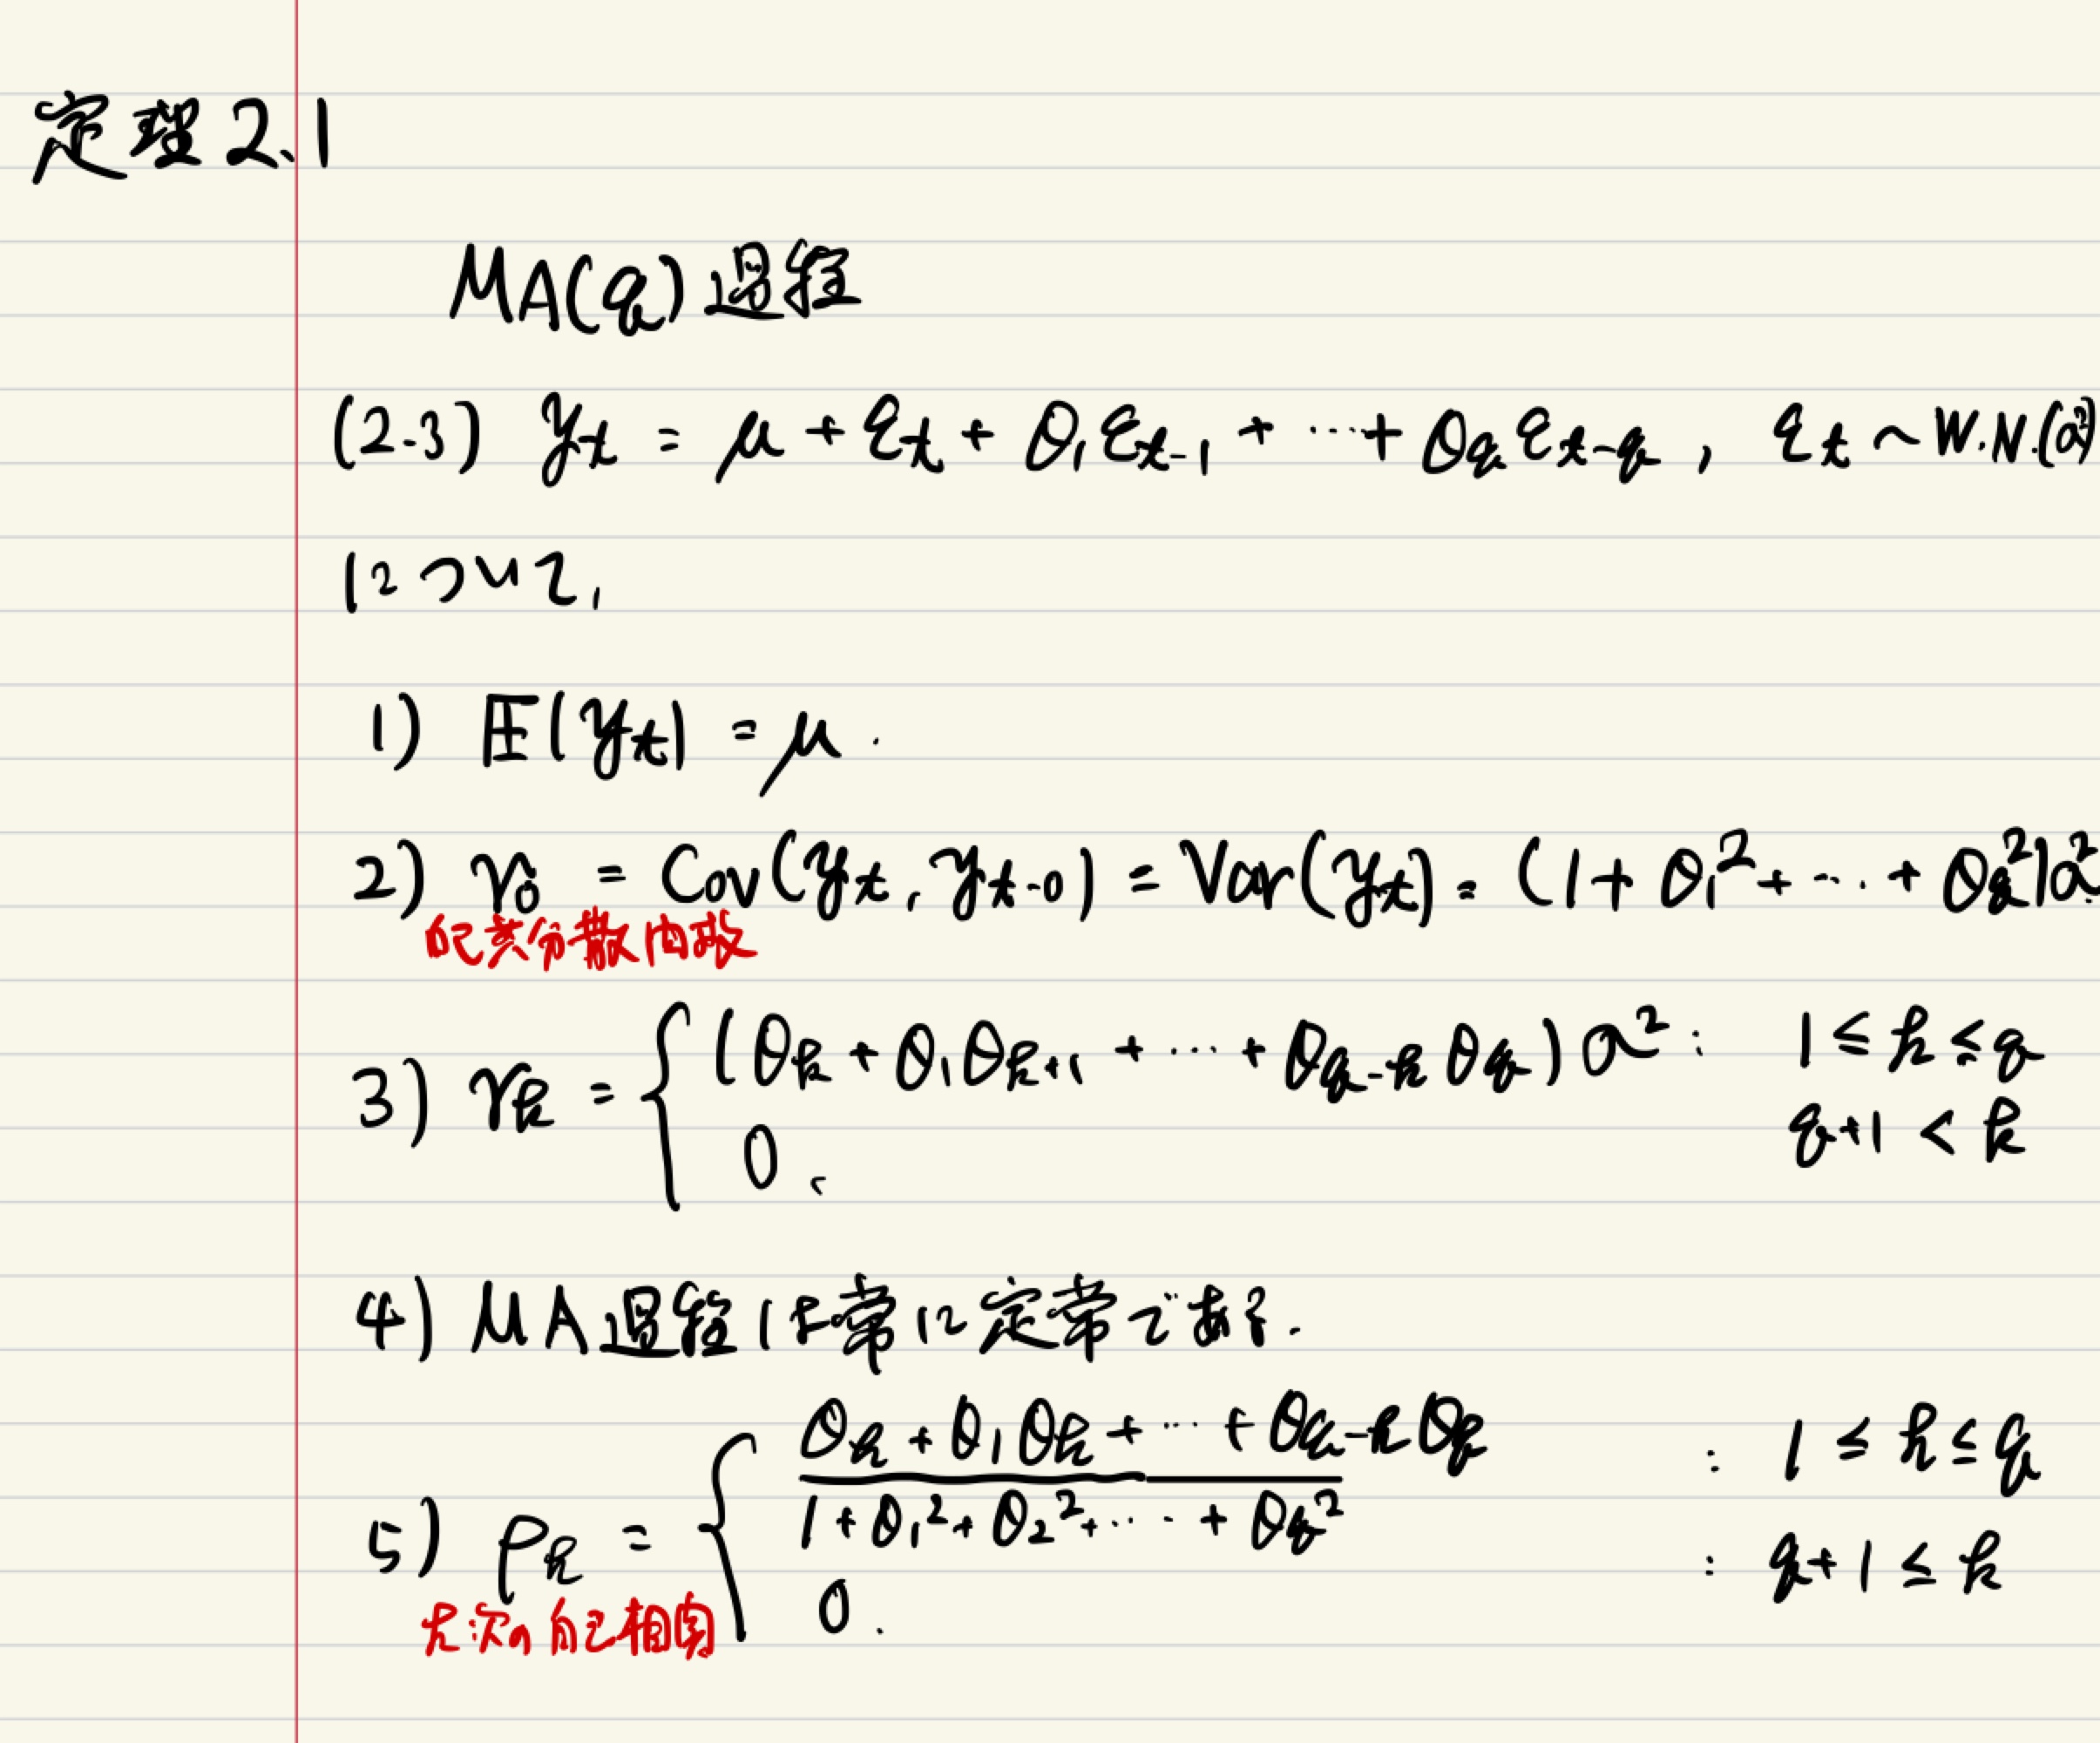 定理2.1
MA(q)過程
(2-3) yt = μ + εt + θ1εt-1 + ⋯ + θqεt-q , εt ~ W.N.(σ²)
について,
1) E(yt) = μ.
2) γ0 = Cov(yt, yt-0) = Var(yt) = (1+θ1²+⋯+θq²)σ².
自己共分散関数
3) γk = { (θk + θ1θk+1 + ⋯ + θq-kθq)σ² : 1 ≤ k ≤ q
0. q+1 < k
4) MA過程は常に定常である.
5) ρk = { θk + θ1θk + ⋯ + θq-kθq / 1+θ1²+θ2²+⋯+θq² : 1 ≤ k ≤ q
0. : q+1 ≤ k
k次の自己相関